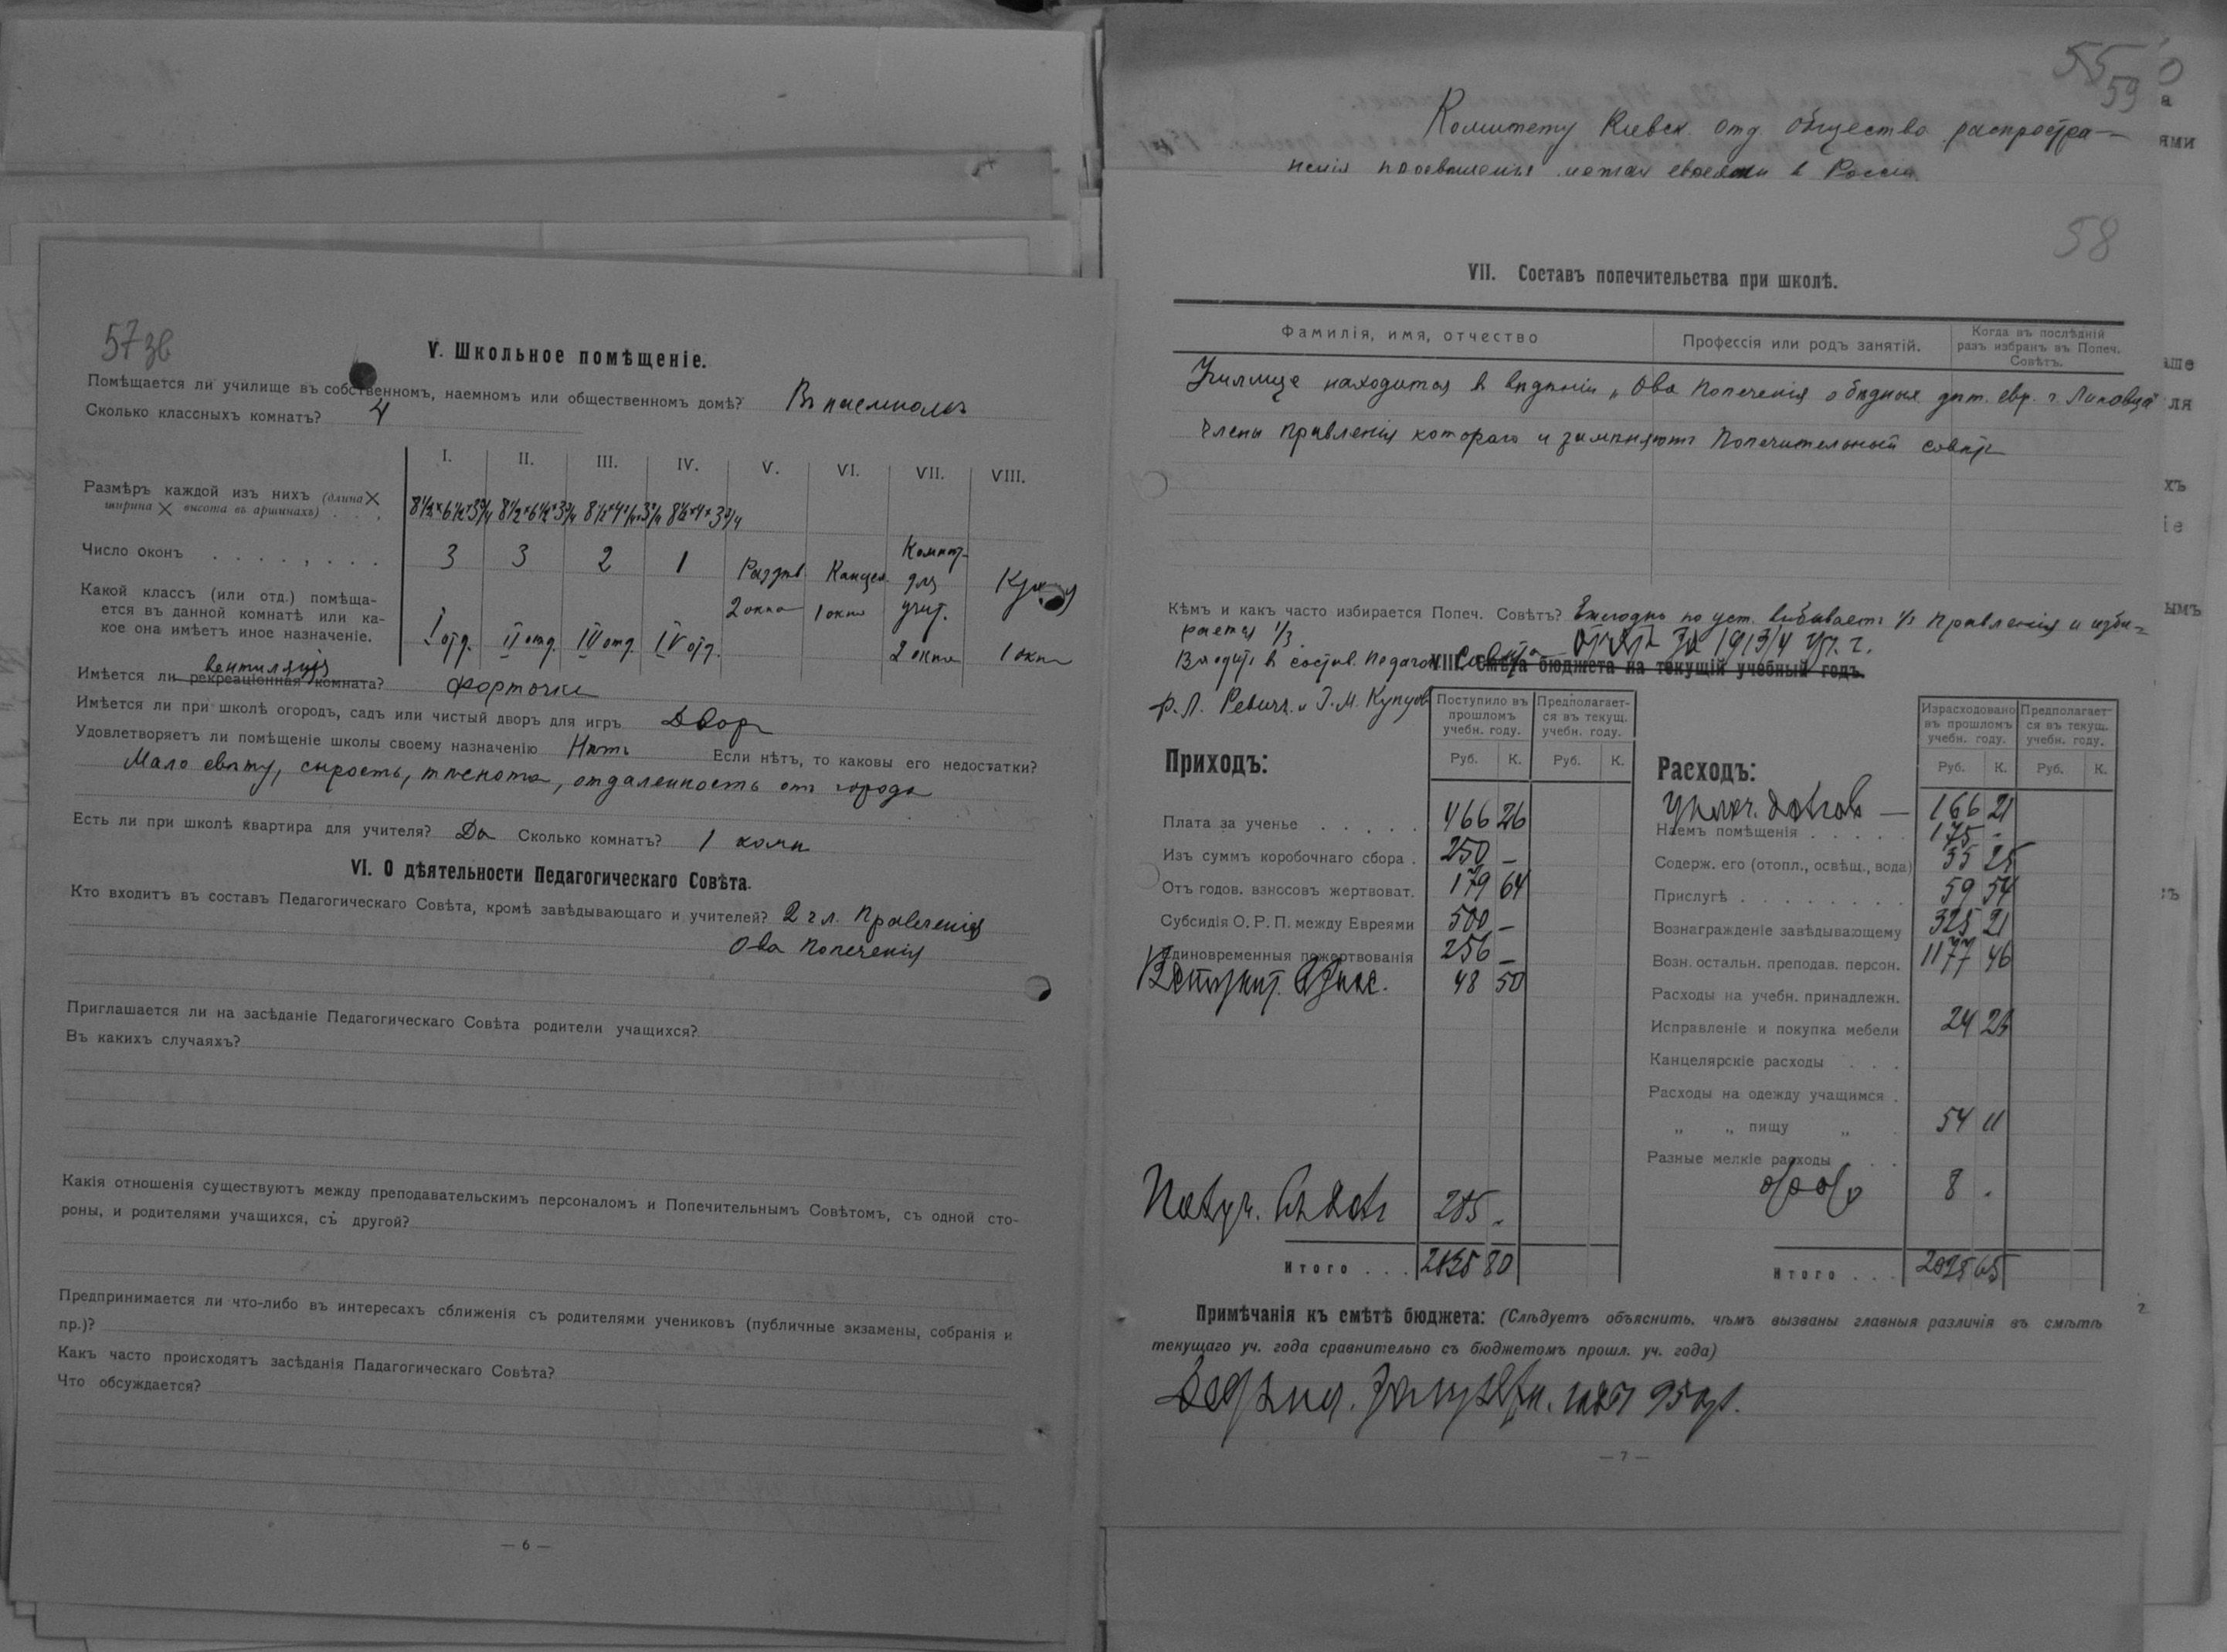 57 зв
V. Школьное помѣщеніе.
Помѣщается ли училище въ собственномъ, наемномъ или общественномъ домѣ? Въ наемномъ
Сколько классныхъ комнатъ? 4
I. II. III. IV. V. VI. VII. VIII.
Размѣръ каждой изъ нихъ (длина ×
ширина × высота въ аршинахъ) . . . 8½×6½×3¾ 8½×6½×3¾ 8½×4½×3¾ 8½×4×3¾
Число оконъ . . . . . . . 3 3 2 1
Какой классъ (или отд.) помѣща-
ется въ данной комнатѣ или ка-
кое она имѣетъ иное назначеніе.
I отд. II отд. III отд. IV отд. Раздѣв. 2 окна Канцел. 1 окно Комнт. для учит. 2 окна Кухня 1 окно
вентиляція
Имѣется ли рекреаціонная комната? форточки
Имѣется ли при школѣ огородъ, садъ или чистый дворъ для игръ Дворъ
Удовлетворяетъ ли помѣщеніе школы своему назначенію Нѣтъ Если нѣтъ, то каковы его недостатки?
Мало свѣту, сырость, тѣснота, отдаленность отъ города
Есть ли при школѣ квартира для учителя? Да Сколько комнатъ? 1 комн
VI. О дѣятельности Педагогическаго Совѣта.
Кто входитъ въ составъ Педагогическаго Совѣта, кромѣ завѣдывающаго и учителей? 2 чл. Правленія
О-ва Попеченія
Приглашается ли на засѣданіе Педагогическаго Совѣта родители учащихся?
Въ какихъ случаяхъ?
Какія отношенія существуютъ между преподавательскимъ персоналомъ и Попечительнымъ Совѣтомъ, съ одной сто-
роны, и родителями учащихся, съ другой?
Предпринимается ли что-либо въ интересахъ сближенія съ родителями учениковъ (публичные экзамены, собранія и
пр.)?
Какъ часто происходятъ засѣданія Падагогическаго Совѣта?
Что обсуждается?
— 6 —
55
59
Комитету Киевск. Отд. Общества распростра-
ненія просвѣщенія между евреями в Россіи
58
VII. Составъ попечительства при школѣ.
Фамилія, имя, отчество Профессія или родъ занятій. Когда въ послѣдній
разъ избранъ въ Попеч.
Совѣтъ.
Училище находится в вѣдѣніи „О-ва Попеченія о бѣдных дѣт. евр. г. Липовца"
Члены Правленія котораго и замѣняютъ Попечительный совѣтъ
Кѣмъ и какъ часто избирается Попеч. Совѣтъ? Ежегодно по уст. выбываетъ ⅓ Правленія и изби-
рается ⅓
Входятъ в состав. Педагог. Совѣта
Отчетъ за 1913/4 уч. г.
VIII. Смѣта бюджета на текущій учебный годъ.
Р. Л. Ревичъ и
Приходъ:
Поступило въ прошломъ учебн. году. Предполагает-ся въ текущ. учебн. году.
Руб. К. Руб. К.
Плата за ученье . . . . . 466 26
Изъ суммъ коробочнаго сбора . 250 —
Отъ годов. взносовъ жертвоват. 179 64
Субсидія О. Р. П. между Евреями 500 —
Единовременныя пожертвованія 256 —
48 50
285 -
Итого . . . 80
Расходъ:
Израсходовано въ прошломъ учебн. году. Предполагает-ся въ текущ. учебн. году.
Руб. К. Руб. К.
166 21
Наемъ помѣщенія . . . . 175 -
Содерж. его (отопл., освѣщ., вода) 35 25
Прислугѣ . . . . . . . . 59 54
Вознагражденіе завѣдывающему 325 21
Возн. остальн. преподав. персон. 1177 46
Расходы на учебн. принадлежн.
Исправленіе и покупка мебели 24
Канцелярскіе расходы . . .
Расходы на одежду учащимся .
„ „ пищу „ . 54 11
Разные мелкіе расходы . .
8 .
Итого . . .
Примѣчанія къ смѣтѣ бюджета: (Слѣдуетъ объяснить, чѣмъ вызваны главныя различія въ смѣтѣ
текущаго уч. года сравнительно съ бюджетомъ прошл. уч. года)
— 7 —